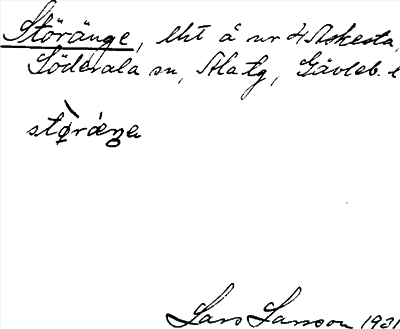 Störänge, lht å nr 4 Askesta,
Söderala sn, Ala tg, Gävleb. l
störäŋa
Lars Larsson 1931